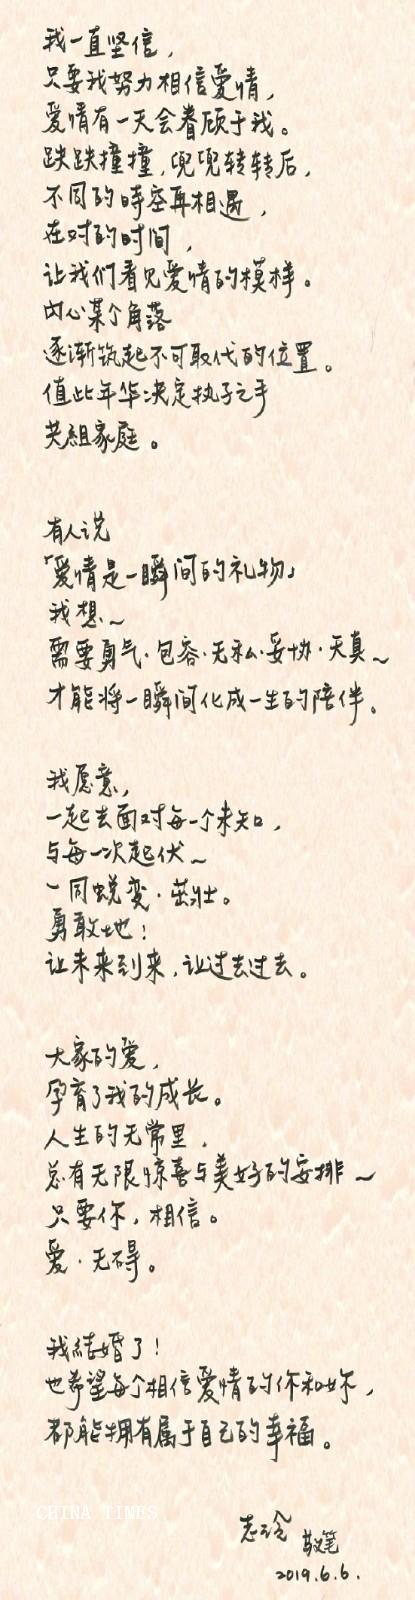 我一直坚信，
只要我努力相信爱情，
爱情有一天会眷顾于我。
跌跌撞撞，兜兜转转后，
不同的時空再相遇，
在对的时间，
让我们看见爱情的模样。
内心某个角落
逐渐筑起不可取代的位置。
值此年华决定执子之手
共組家庭。
有人说
「爱情是一瞬间的礼物」
我想~
需要勇气·包容·无私·妥协·天真~
才能将一瞬间化成一生的陪伴。
我愿意，
一起去面对每一个未知，
与每一次起伏~
一同蜕变·茁壮。
勇敢地！
让未来到来，让过去过去。
大家的爱，
孕育了我的成长。
人生的无常里，
总有无限惊喜与美好的安排~
只要你，相信。
爱·无碍。
我結婚了！
也希望每个相信爱情的你和妳，
都能拥有属于自己的幸福。
CHINA TIMES
志玲 敬笔
2019.6.6.